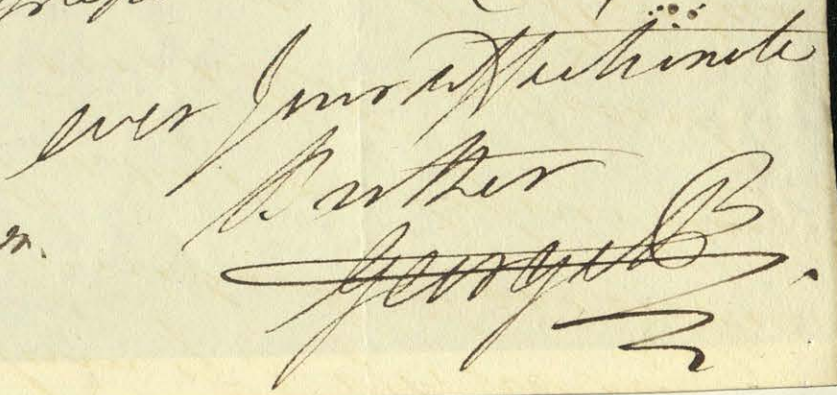 ever Your affectionate
Brother
George B